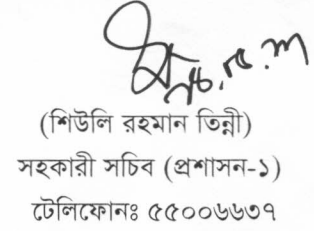 (শিউলি রহমান তিন্নী)
সহকারী সচিব (প্রশাসন-১)
টেলিফোনঃ ৫৫০০৬৬৩৭